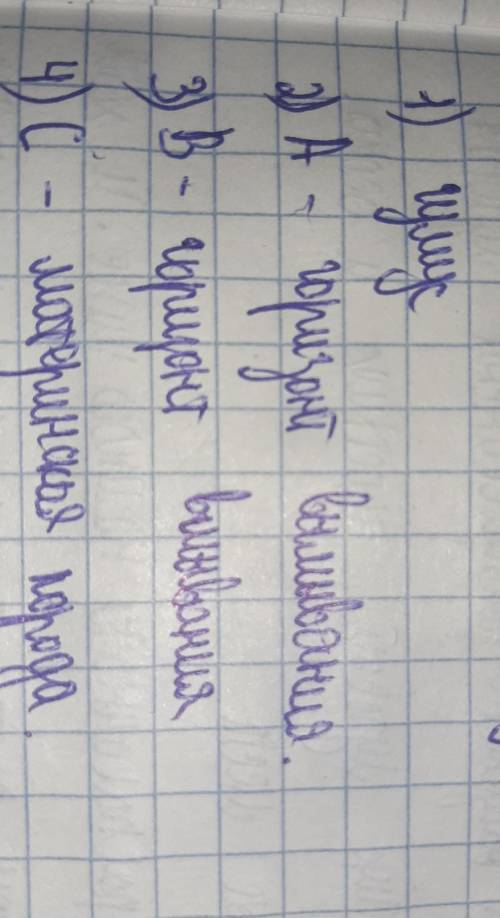 1) гумус
2) А - горизонт вымывания.
3) В - горизонт вмывания
4) С - материнская порода.